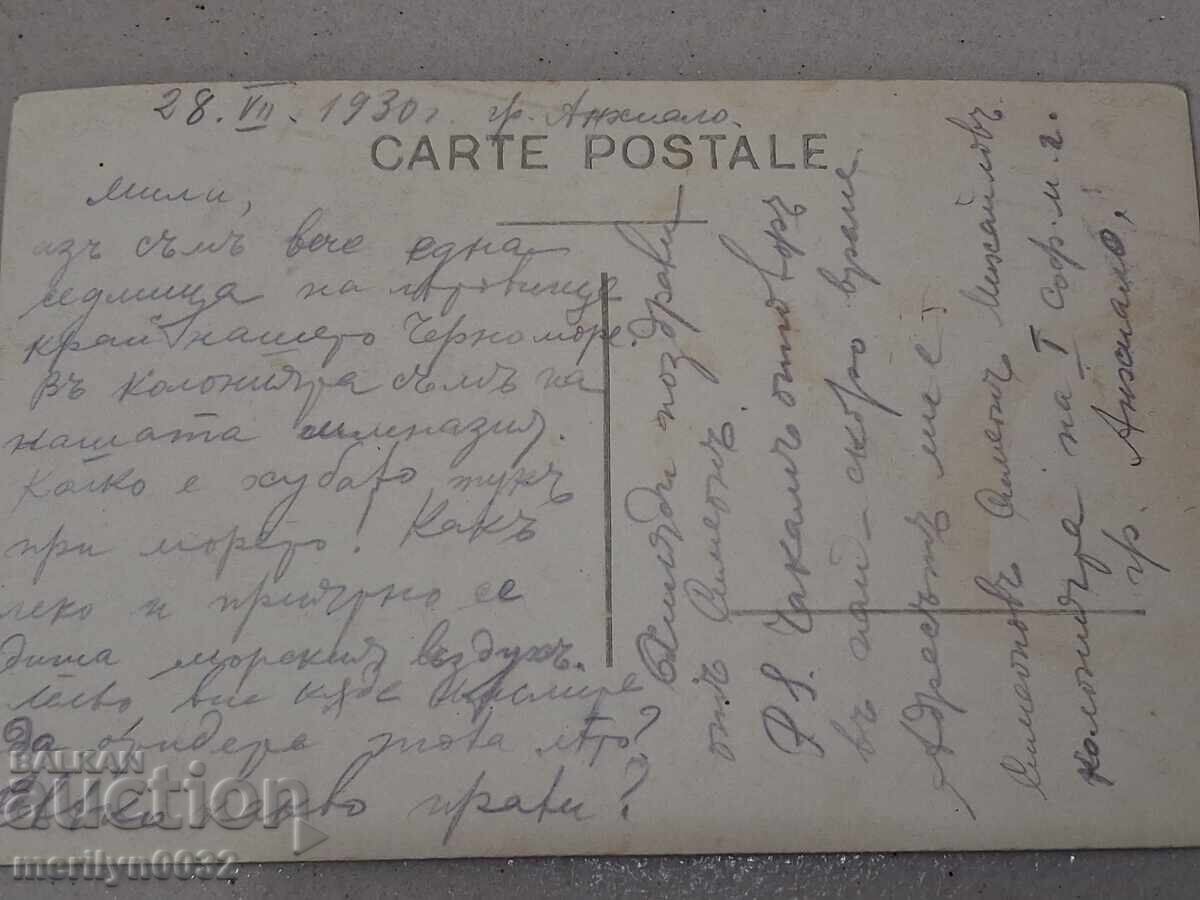 28. VII. 1930 г. гр. Анхиало.
CARTE POSTALE
Мили,
азъ съмъ вече една
седмица на
край нашето Черноморе.
Въ колонията съмъ на
нашата гимназия.
Колко е хубаво тукъ
при морето! Какъ
леко и приятно се
диша морския въздухъ.
вие кѫде мислите
да отидете това лѣто?
какво прави?
поздрави
отъ Симеонъ.
P.S. Чакамъ отговоръ
въ най-скоро време
Адресътъ ми е:
Симеоновъ Симеонъ Михайловъ
колонията на I Соф. м. г.
гр. Анхиало!
BALKAN
auction
merilyn0032